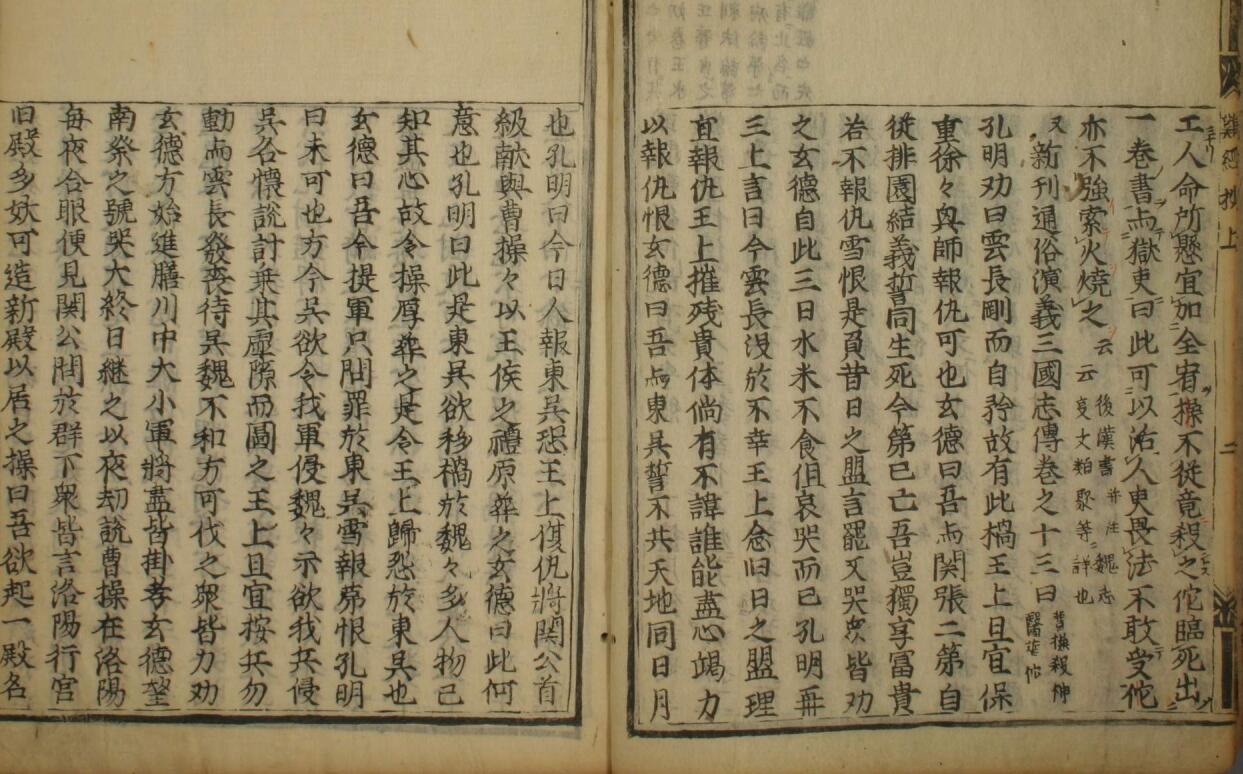 難經抄上
二
工人命所懸宜加全宥操不從竟殺之佗臨死出
一卷書与獄吏曰此可以活人吏畏法不敢受佗
亦不強索火燒之云
後漢書并注魏志
云变文粕聚等詳也
又新刊通俗演義三國志傳卷之十三曰
曹操殺神
醫華佗
孔明劝曰雲長剛而自矜故有此禍王上且宜保
重徐々與師報仇可也玄德曰吾与関張二第自
從排園結義誓同生死今第已亡吾豈獨享富貴
若不報仇雪恨是負昔日之盟言罷又哭衆皆劝
之玄德自此三日水米不食但哀哭而已孔明再
三上言曰今雲長没於不幸王上念旧日之盟理
宜報仇王上摧残貴体倘有不諱誰能盡心竭力
以報仇恨玄德曰吾与東吴誓不共天地同日月
也孔明曰今日人報東吴恐王上復仇將関公首
級献與曹操々以王侯之禮原葬之玄德曰此何
意也孔明曰此是東吴欲移禍於魏々多人物已
知其心故令操厚葬之是令王上歸怨於東吴也
玄德曰吾今提軍只問罪於東吴雪報弟恨孔明
曰未可也方今吴欲令我軍侵魏々示欲我兵侵
吴各懐説討乗其虚隙而圖之王上且宜按兵勿
動而雲長發喪待吴魏不和方可伐之衆皆力劝
玄德方始進膳川中大小軍將盡皆掛孝玄德望
南祭之號哭大終日継之以夜却説曹操在洛陽
毎夜合眼便見関公問於群下衆皆言洛陽行宮
旧殿多妖可造新殿以居之操曰吾欲起一殿名